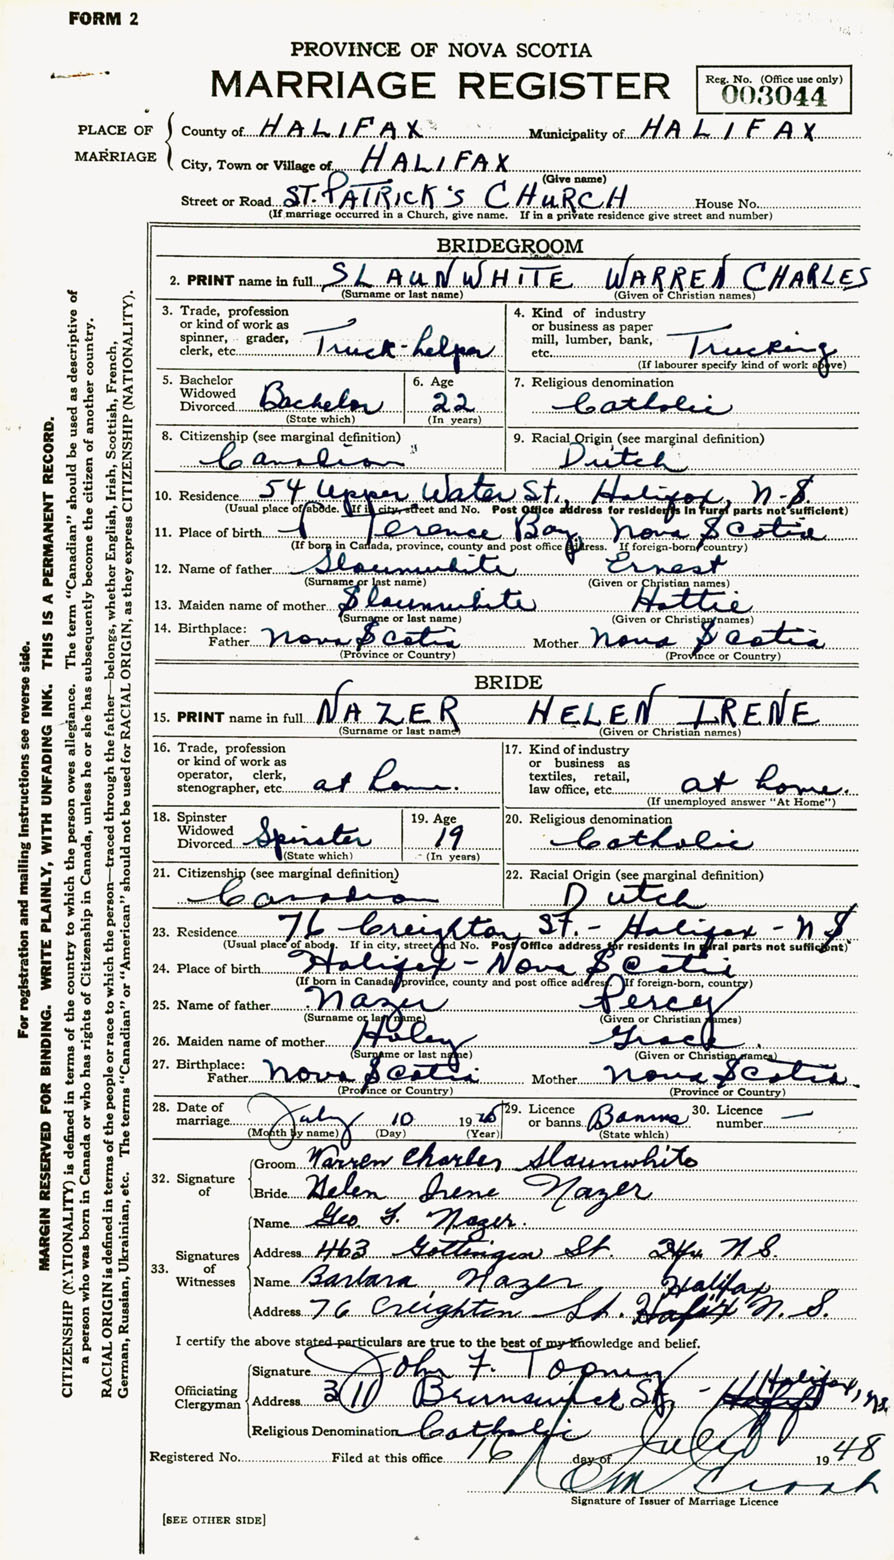 FORM 2
PROVINCE OF NOVA SCOTIA
MARRIAGE REGISTER
Reg. No. (Office use only)
003044
PLACE OF MARRIAGE
County of HALIFAX Municipality of HALIFAX
City, Town or Village of HALIFAX
(Give name)
Street or Road ST. PATRICK'S CHURCH House No.
(If marriage occurred in a Church, give name. If in a private residence give street and number)
BRIDEGROOM
2. PRINT name in full SLAUNWHITE WARREN CHARLES
(Surname or last name) (Given or Christian names)
3. Trade, profession or kind of work as spinner, grader, clerk, etc. Truck-helper
4. Kind of industry or business as paper mill, lumber, bank, etc. Trucking
(If labourer specify kind of work above)
5. Bachelor Widowed Divorced Bachelor
(State which)
6. Age 22
(In years)
7. Religious denomination Catholic
8. Citizenship (see marginal definition) Canadian
9. Racial Origin (see marginal definition) Dutch
10. Residence 54 Upper Water St., Halifax, N.S.
(Usual place of abode. If in city, street and No. Post Office address for residents in rural parts not sufficient)
11. Place of birth Terence Bay Nova Scotia
(If born in Canada, province, county and post office address. If foreign-born country)
12. Name of father Slaunwhite Ernest
(Surname or last name) (Given or Christian names)
13. Maiden name of mother Slaunwhite Hattie
(Surname or last name) (Given or Christian names)
14. Birthplace:
Father Nova Scotia Mother Nova Scotia
(Province or Country) (Province or Country)
BRIDE
15. PRINT name in full NAZER HELEN IRENE
(Surname or last name) (Given or Christian names)
16. Trade, profession or kind of work as operator, clerk, stenographer, etc. at home.
17. Kind of industry or business as textiles, retail, law office, etc. at home.
(If unemployed answer "At Home")
18. Spinster Widowed Divorced Spinster
(State which)
19. Age 19
(In years)
20. Religious denomination Catholic
21. Citizenship (see marginal definition) Canadian
22. Racial Origin (see marginal definition) Dutch
23. Residence 76 Creighton St. - Halifax - N S
(Usual place of abode. If in city, street and No. Post Office address for residents in rural parts not sufficient)
24. Place of birth Halifax - Nova Scotia
(If born in Canada, province, county and post office address. If foreign-born, country)
25. Name of father Nazer Percy
(Surname or last name) (Given or Christian names)
26. Maiden name of mother Haley Grace
(Surname or last name) (Given or Christian names)
27. Birthplace:
Father Nova Scotia Mother Nova Scotia
(Province or Country) (Province or Country)
28. Date of marriage July 10 19
(Month by name) (Day) (Year)
29. Licence or banns Banns
(State which)
30. Licence number —
32. Signature of
Groom Warren Charles Slaunwhite
Bride Helen Irene Nazer
33. Signatures of Witnesses
Name Geo F. Nazer.
Address 463 Gottingen St. Hfx N.S.
Name Barbara Nazer
Halifax
Address 76 Creighton St. N.S.
I certify the above stated particulars are true to the best of my knowledge and belief.
Officiating Clergyman
Signature John F. Toomey
Address 311 Brunswick St, - Halifax, N.S.
Religious Denomination Catholic
Registered No. Filed at this office 16 day of July 1948
Signature of Issuer of Marriage Licence
[SEE OTHER SIDE]
For registration and mailing instructions see reverse side.
MARGIN RESERVED FOR BINDING. WRITE PLAINLY, WITH UNFADING INK. THIS IS A PERMANENT RECORD.
CITIZENSHIP (NATIONALITY) is defined in terms of the country to which the person owes allegiance. The term "Canadian" should be used as descriptive of
a person who was born in Canada or who has rights of Citizenship in Canada, unless he or she has subsequently become the citizen of another country.
RACIAL ORIGIN is defined in terms of the people or race to which the person—traced through the father—belongs, whether English, Irish, Scottish, French,
German, Russian, Ukrainian, etc. The terms "Canadian" or "American" should not be used for RACIAL ORIGIN, as they express CITIZENSHIP (NATIONALITY).